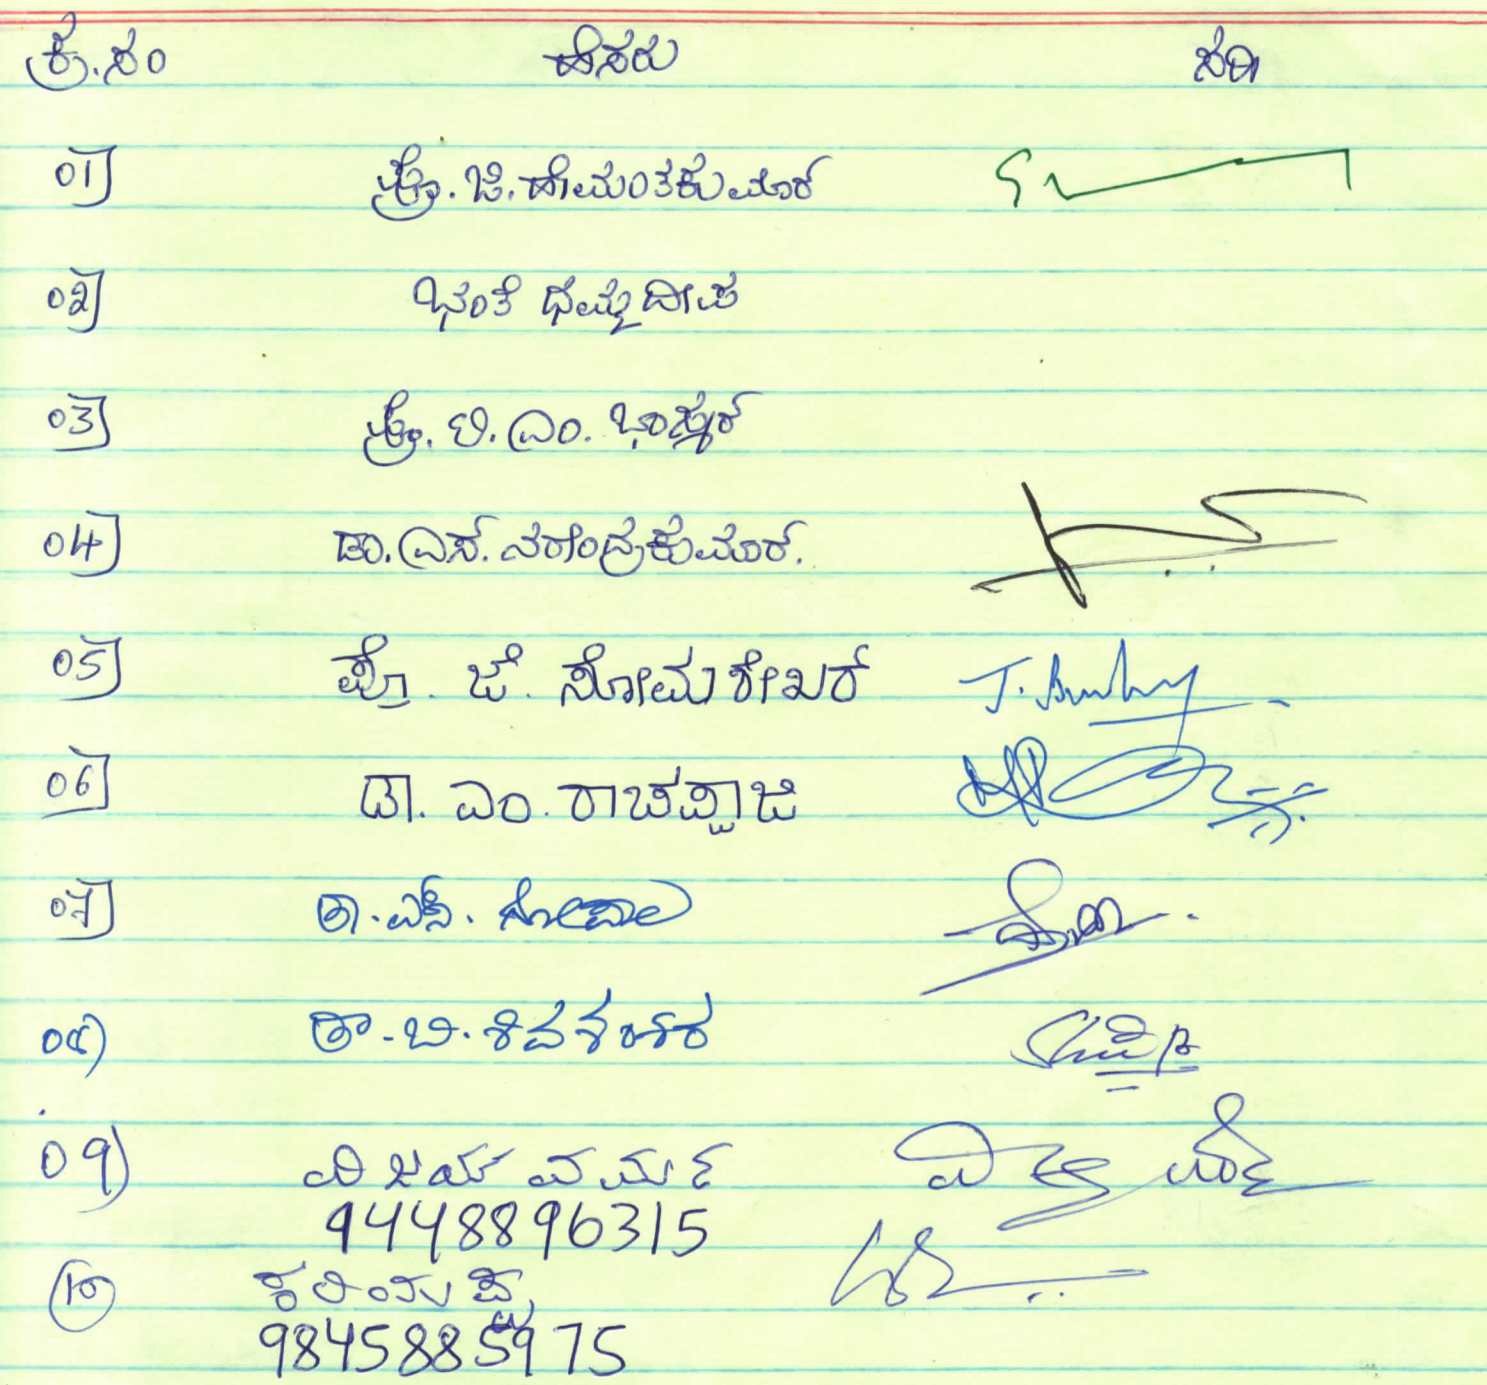 ಕ್ರ.ಸಂ ಹೆಸರು ಸಹಿ
01] ಪ್ರೊ. ಜಿ. ಹೇಮಂತಕುಮಾರ್
02] ಭಂತೆ ಧಮ್ಮದೀಪ
03] ಪ್ರೊ. ಟಿ. ಎಂ. ಭಾಸ್ಕರ್
04] ಡಾ. ಎಸ್. ನರೇಂದ್ರಕುಮಾರ್.
05] ಪ್ರೊ. ಜೆ. ಸೋಮಶೇಖರ್
06] ಡಾ. ಎಂ. ರಾಚಪ್ಪಾಜಿ
07] ಡಾ. ಎಸ್.
08) ಡಾ. ಬಿ. ಶಿವಶಂಕರ
09) ವಿಜಯ ವರ್ಮ
9448896315
10 ಕರಿಯಪ್ಪ
9845885975